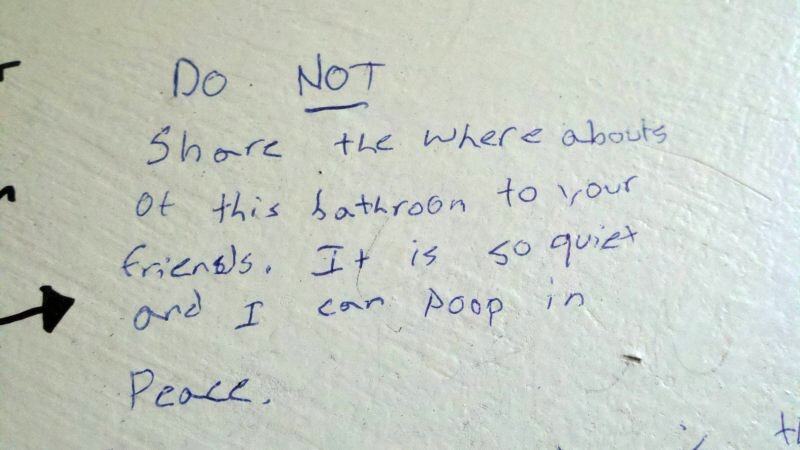 Do NOT
Share the where abouts
of this bathroon to your
friends. It is so quiet
and I can poop in
Peace.